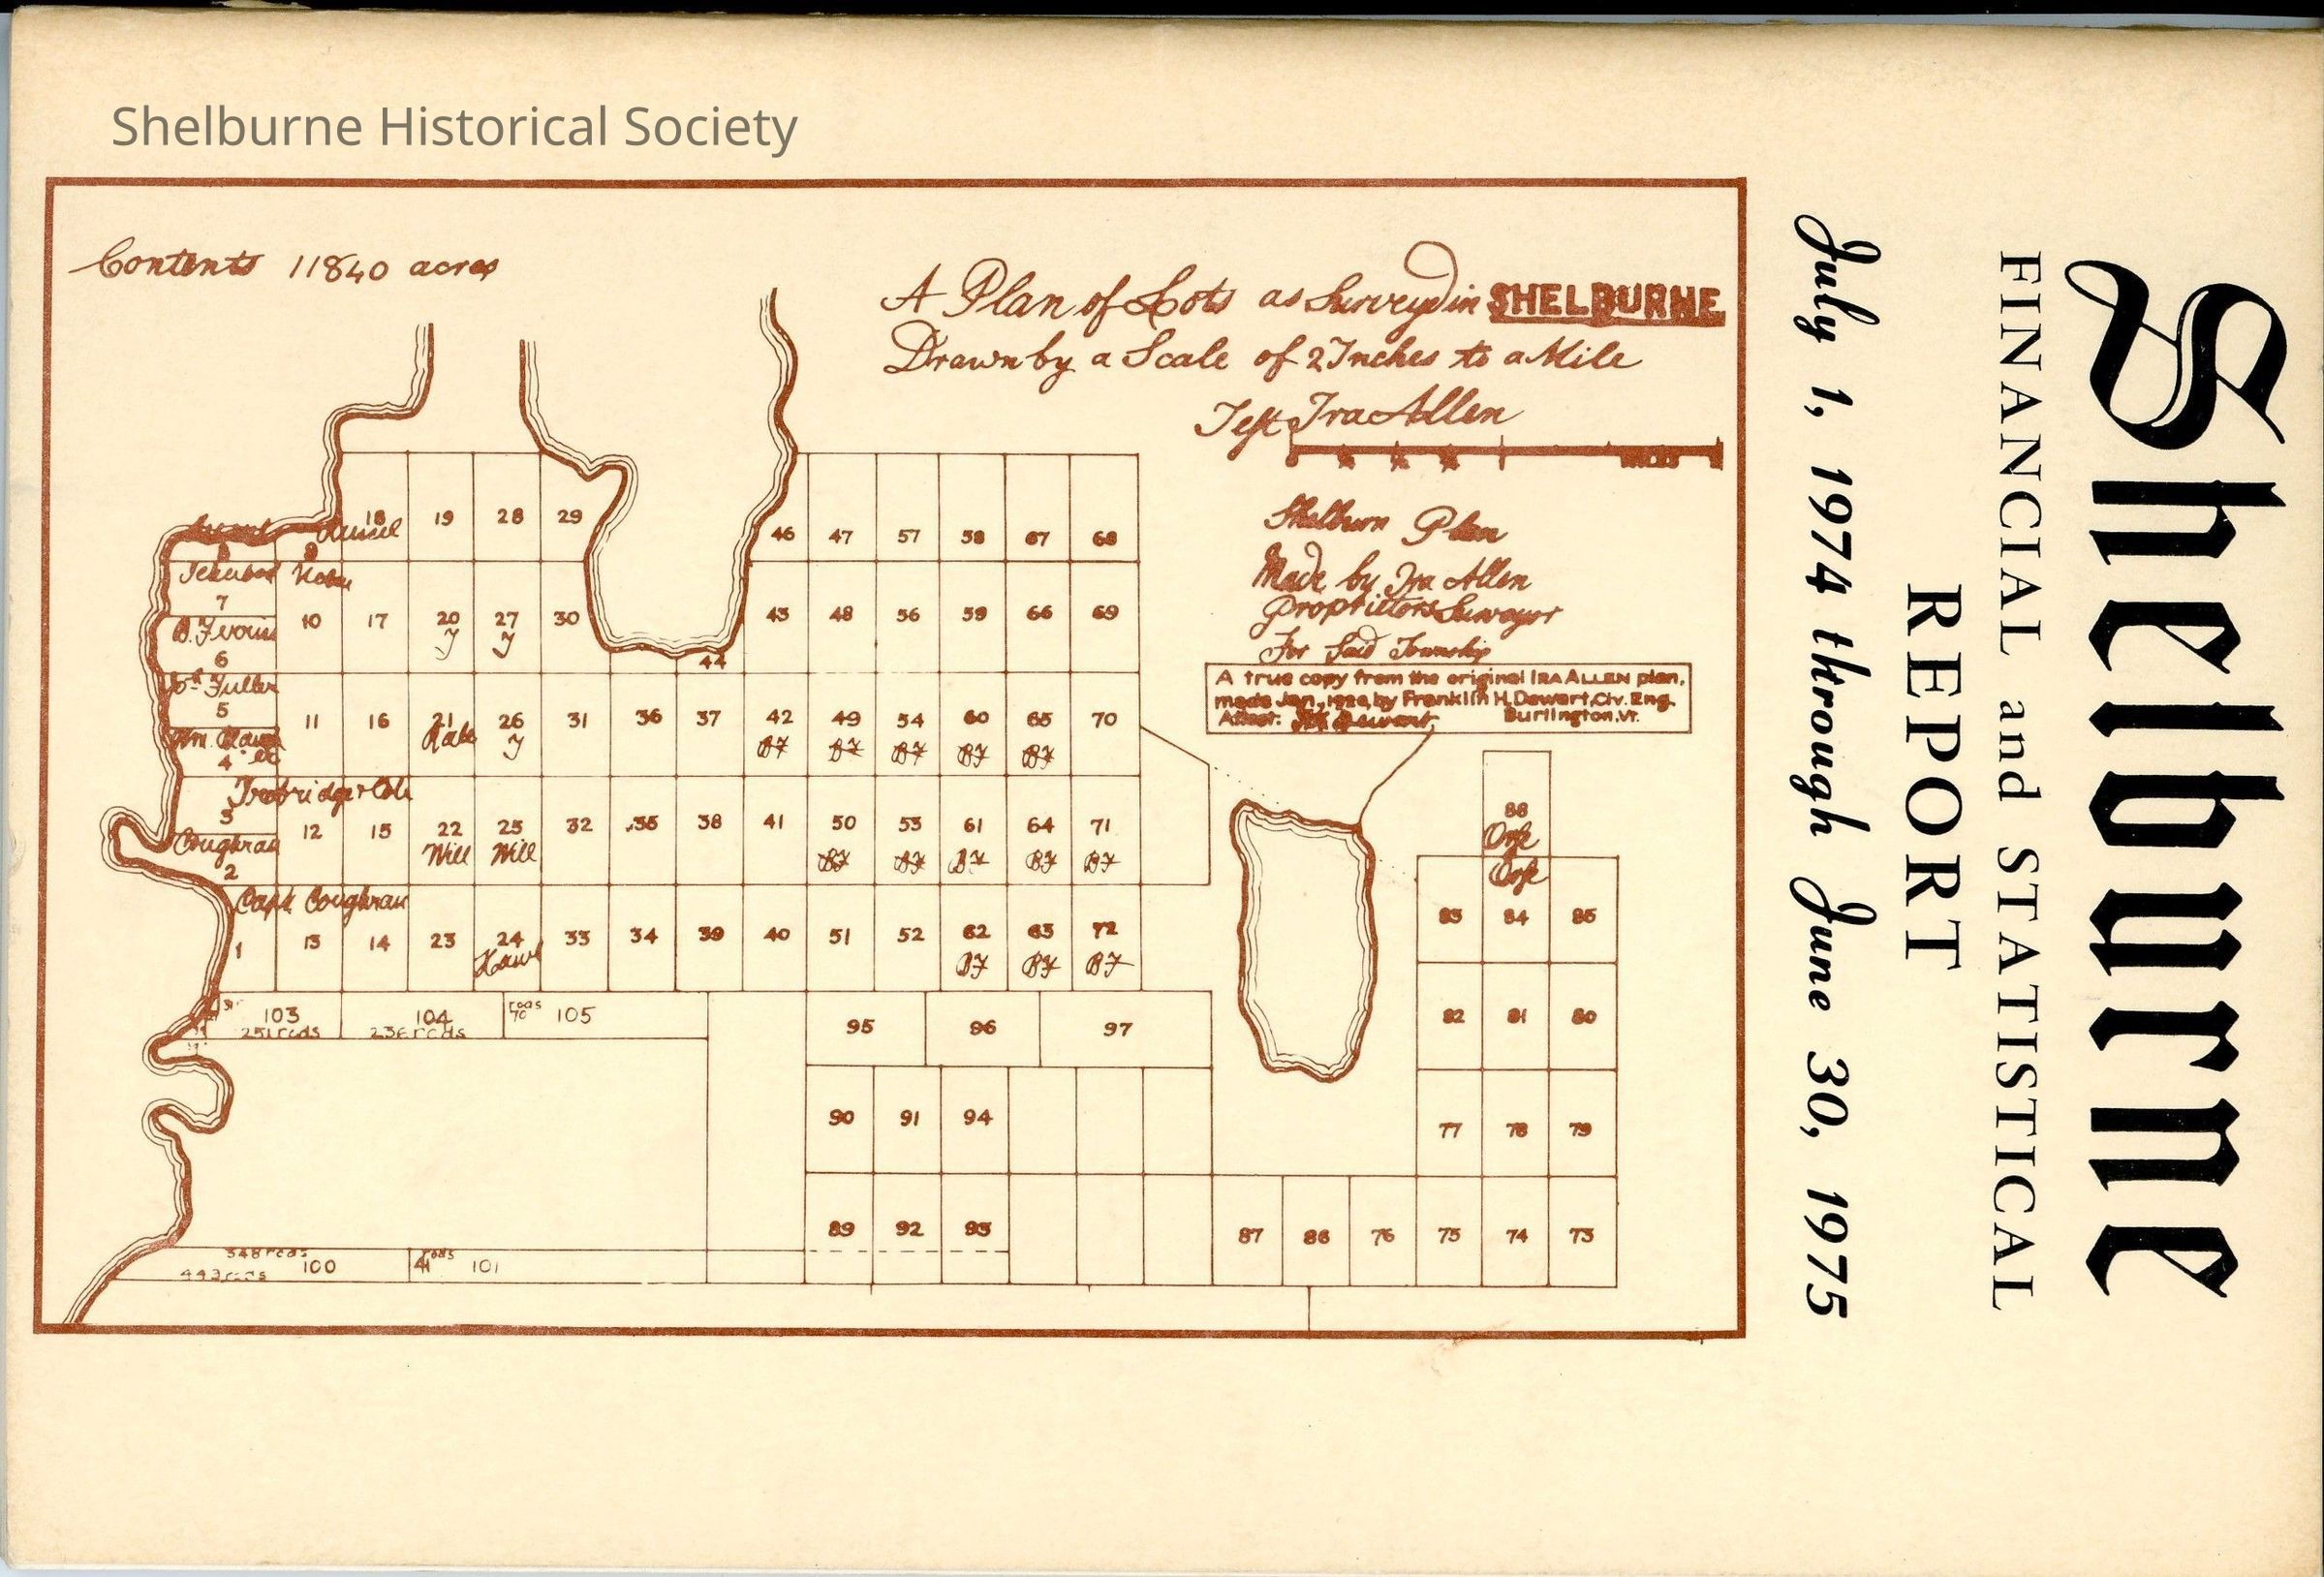 Shelburne Historical Society
Shelburne
FINANCIAL and STATISTICAL
REPORT
July 1, 1974 through June 30, 1975
Contents 11840 acres
A Plan of Lots as Surveyd in SHELBURNE
Drawn by a Scale of 2 Inches to a Mile
Test Ira Allen
Shelburn Plan
Made by Ira Allen
Proprietors Surveyor
For Said Township
A true copy from the original IRA ALLEN plan,
made Jan., by Franklin H. Dewart, Civ. Eng.
Attest: Dewart, Burlington, Vt.
18 19 28 29 46 47 57 58 67 68
8 9
7
10 17 20 27 30 45 48 56 59 66 69
6
44
Fuller
5
11 16 21 26 31 36 37 42 49 54 60 65 70
4
Trobridge & Cole
3
12 15 22 25 32 35 38 41 50 53 61 64 71
Will Will
Coughran
2
Capt. Coughran
1 13 14 23 24 33 34 39 40 51 52 62 63 72
103 104 rods 70 105
251 rods 236 rods
95 96 97
88
83 84 85
82 81 80
90 91 94
77 78 79
89 92 93 87 86 76 75 74 73
348 rods 100 rods 41 101
443 rods